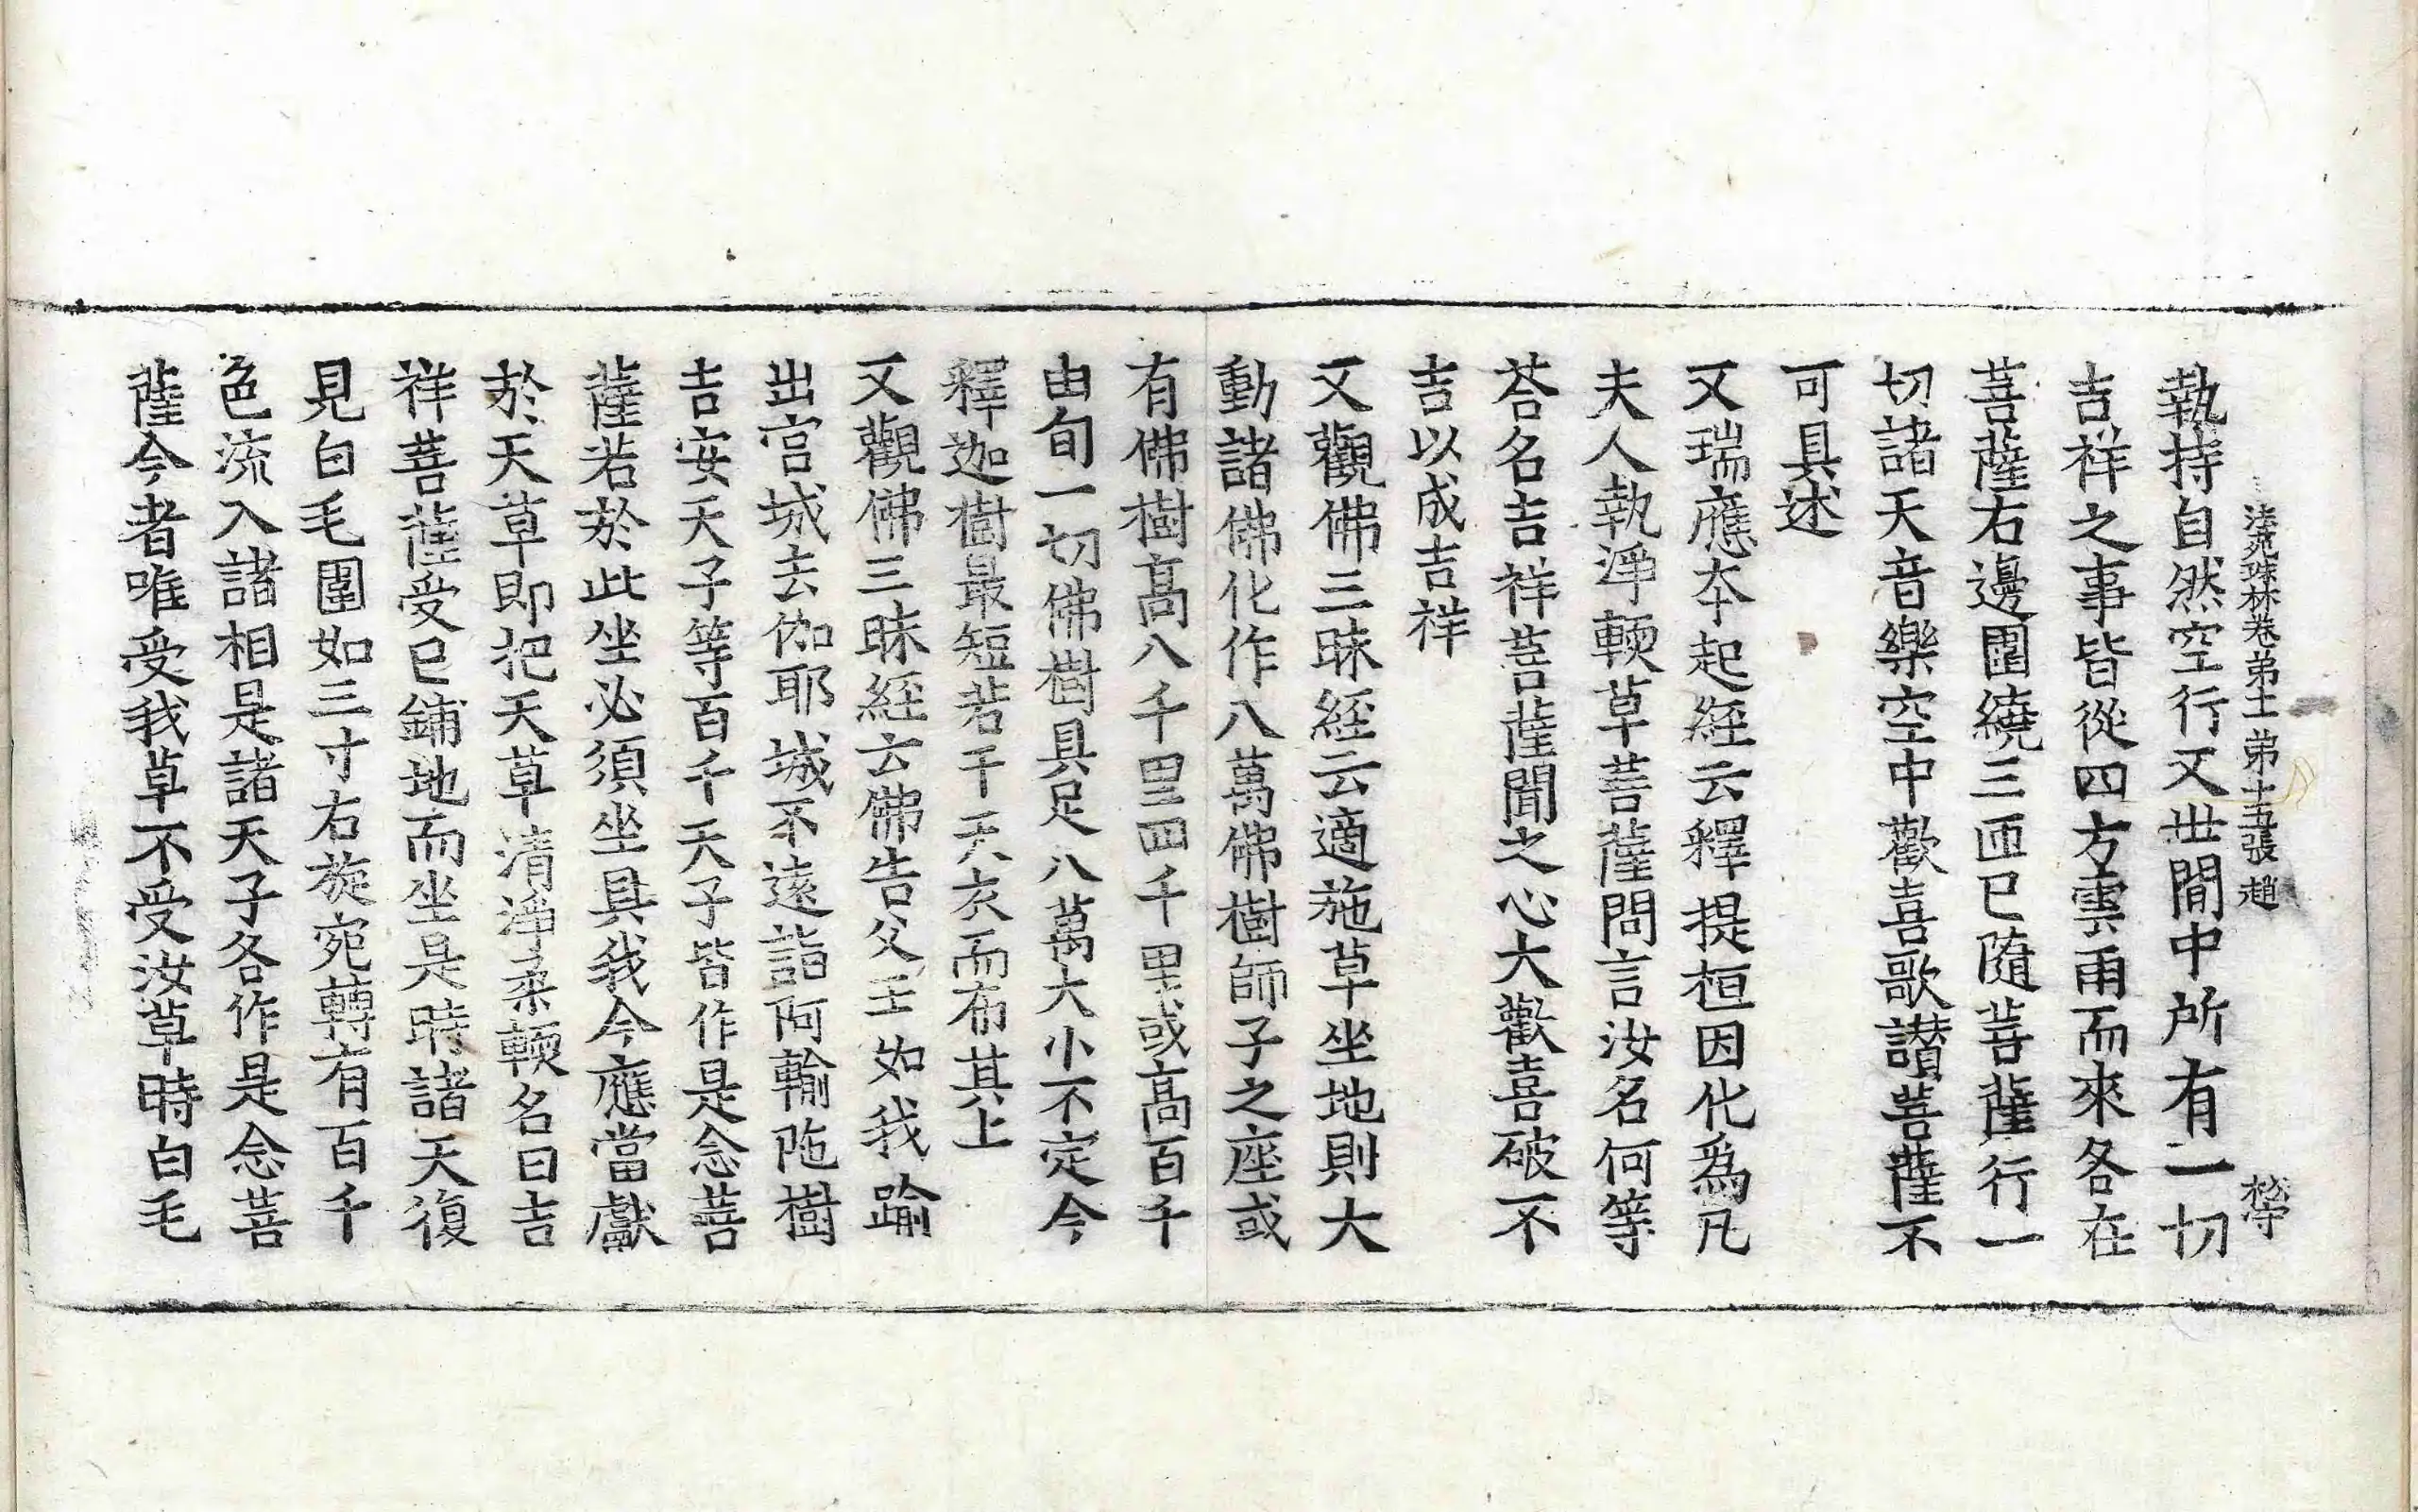 法苑珠林卷第十一 第十五張 趙
執持自然空行又世間中所有一切
吉祥之事皆從四方雲雨而來各在
菩薩右邊圍繞三匝已隨菩薩行一
切諸天音樂空中歡喜歌讃菩薩不
可具述
又瑞應夲起經云釋提桓因化爲凡
夫人執淨輭草菩薩問言汝名何等
荅名吉祥菩薩聞之心大歡喜破不
吉以成吉祥
又觀佛三昧經云適施草坐地則大
動諸佛化作八萬佛樹師子之座或
有佛樹髙八千里四千里或高百千
由旬一切佛樹具足八萬大小不定今
釋迦樹最短若干天衣而布其上
又觀佛三昧經云佛告父王如我踰
出宫城去伽耶城不遠詣阿輸陁樹
吉安天子等百千天子皆作是念菩
薩若於此坐必須坐具我今應當獻
於天草即把天草清淨柔輭名曰吉
祥菩薩受已鋪地而坐是時諸天復
見白毛圍如三寸右旋宛轉有百千
色流入諸相是諸天子各作是念菩
薩今者唯受我草不受汝草時白毛